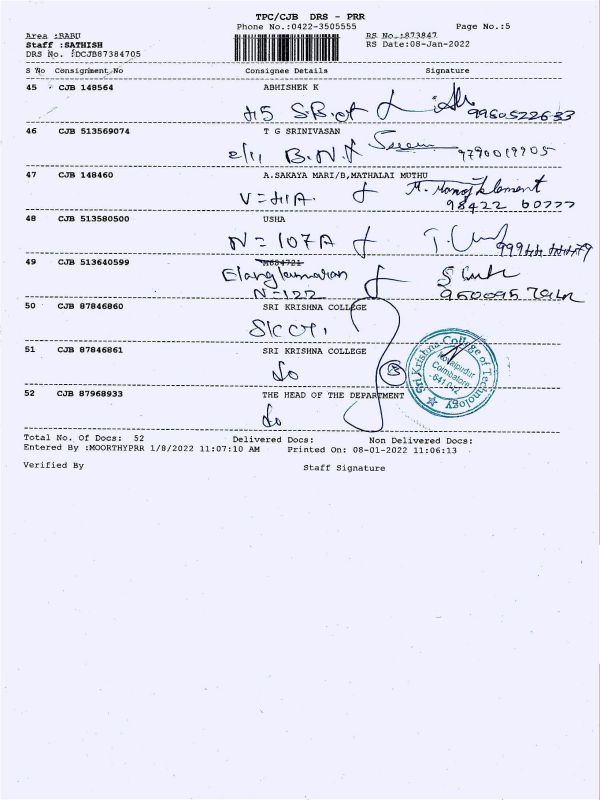 TPC/CJB DRS - PRR
Phone No.:0422-3505555 Page No.:5
Area :BABU RS No.:873847
Staff :SATHISH RS Date:08-Jan-2022
DRS No. :DCJB87384705
S No Consignment No Consignee Details Signature
45 CJB 148564 ABHISHEK K
46 CJB 513569074 T G SRINIVASAN
9790019905
47 CJB 148460 A.SAKAYA MARI/B,MATHALAI MUTHU
98422 60777
48 CJB 513580500 USHA
N=107A
49 CJB 513640599
N=122
50 CJB 87846860 SRI KRISHNA COLLEGE
51 CJB 87846861 SRI KRISHNA COLLEGE
do
Sri Krishna College of Technology
Kovaipudur
Coimbatore
-641 042
52 CJB 87968933 THE HEAD OF THE DEPARTMENT
do
Total No. Of Docs: 52 Delivered Docs: Non Delivered Docs:
Entered By :MOORTHYPRR 1/8/2022 11:07:10 AM Printed On: 08-01-2022 11:06:13
Verified By Staff Signature